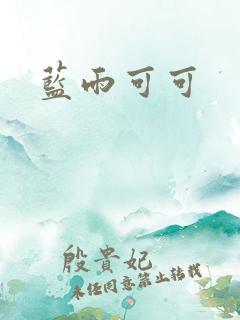 藍雨可可
殷貴妃
未經同意禁止轉載